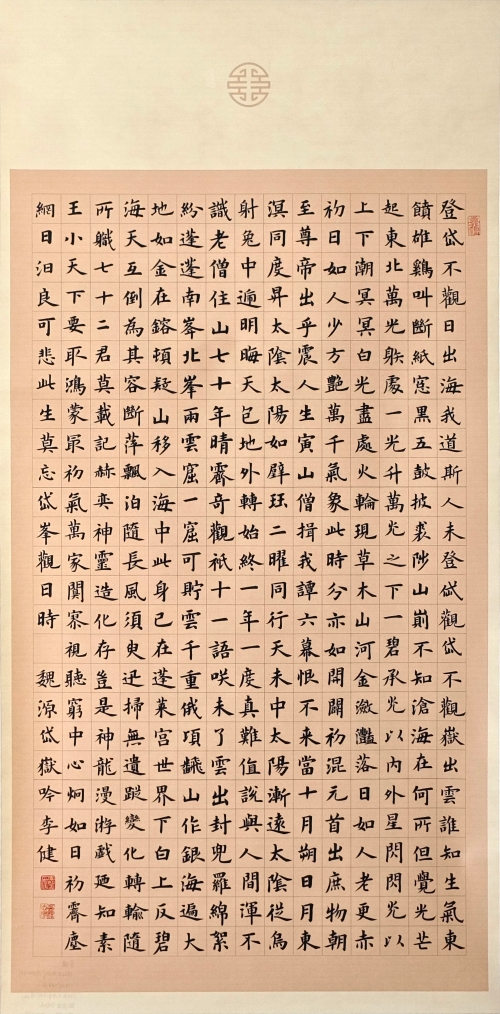 登岱不觀日出海我道斯人未登岱觀岱不觀嶽出雲誰知生氣東
饋雄鷄叫斷紙窓黒五鼓披裘陟山巔不知滄海在何所但覺光芒
起東北萬光躲處一光升萬光之下一碧承光以內外星閃閃光以
上下潮冥冥白光盡處火輪現草木山河金瀲灩落日如人老更赤
初日如人少方艷萬千氣象此時分亦如開闢初混元首出庶物朝
至尊帝出乎震人生寅山僧揖我譚六幕恨不来當十月朔日月東
溟同度昇太陰太陽如壁珏二曜同行天未中太陽漸遠太陰從烏
射兔中遁明晦天包地外轉始終一年一度真難值說與人間渾不
識老僧住山七十年晴霽奇觀祇十一語咲未了雲出封兜羅綿絮
紛蓬蓬南峯北峯兩雲窟一窟可貯雲千重俄頃山作銀海遍大
地如金在鎔頓疑山移入海中此身已在蓬萊宮世界下白上反碧
海天互倒為其容斷萍飄泊隨長風須臾迅掃無遺蹤變化轉輸隨
所職七十二君莫載記赫奕神靈造化存豈是神龍漫游戲廼知素
王小天下要取鴻蒙最初氣萬家闤寮視聽窮中心炯如日初霽塵
網日汩良可悲此生莫忘岱峯觀日時 魏源岱嶽吟李健